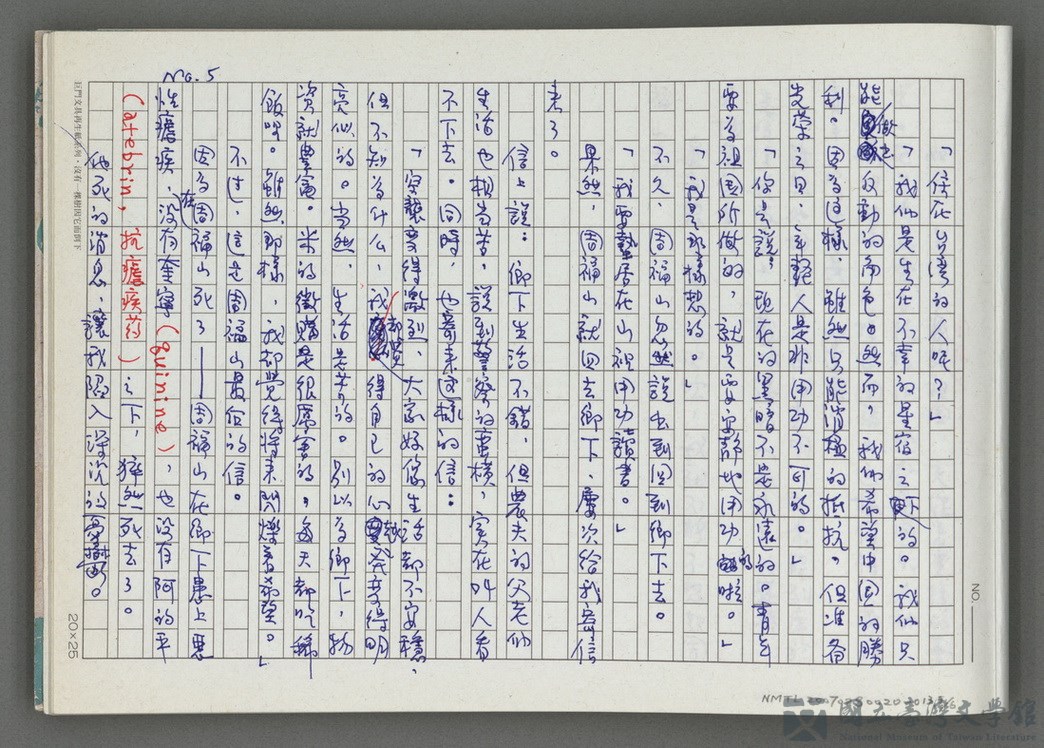 No. 5
NO.
「住在台湾的人呢？」
「我们是生在不幸的星宿之下的。我们只
能做出反動的角色。然而，我们希望中国的勝
利。因為这樣，雖然只能消極的抵抗，但准备
光荣之日，年轻人是非用功不可的。」
「你是說，現在的黑暗不是永遠的。青年
要為祖国所做的，就是要安静地用功的啦。」
「我是那樣想的。」
不久，周福山忽然說出到回到鄉下去。
「我要蟄居在山裡用功讀書。」
果然，周福山就回去鄉下，屢次給我寄信
来了。
信上說：鄉下生活不錯，但農夫的父老们
生活也相当苦，說到警察的蛮横，实在叫人看
不下去。同時，也寄来这樣的信：
「空襲变得激烈，大家好像生活都不安穩，
但不知為什么，我却覺得自己的心却变得明
亮似的。当然，生活是苦的。別以為鄉下，物
資就豊富。米的徵購是很厲害的，每天都吃稀
飯呀。雖然那樣，我却覺得将来閃爍着希望。」
不过，这是周福山最后的信。
因為周福山死了——周福山在鄉下患上惡
性瘧疾，在没有奎寧（quinine），也没有阿的平
（atebrin，抗瘧疾药）之下，猝然死去了。
他死的消息，讓我陷入深沉的憂鬱。
巨門文具再生紙系列・沒有一棵樹因它而倒下
20×25
國立臺灣文學館
National Museum of Taiwan Literature